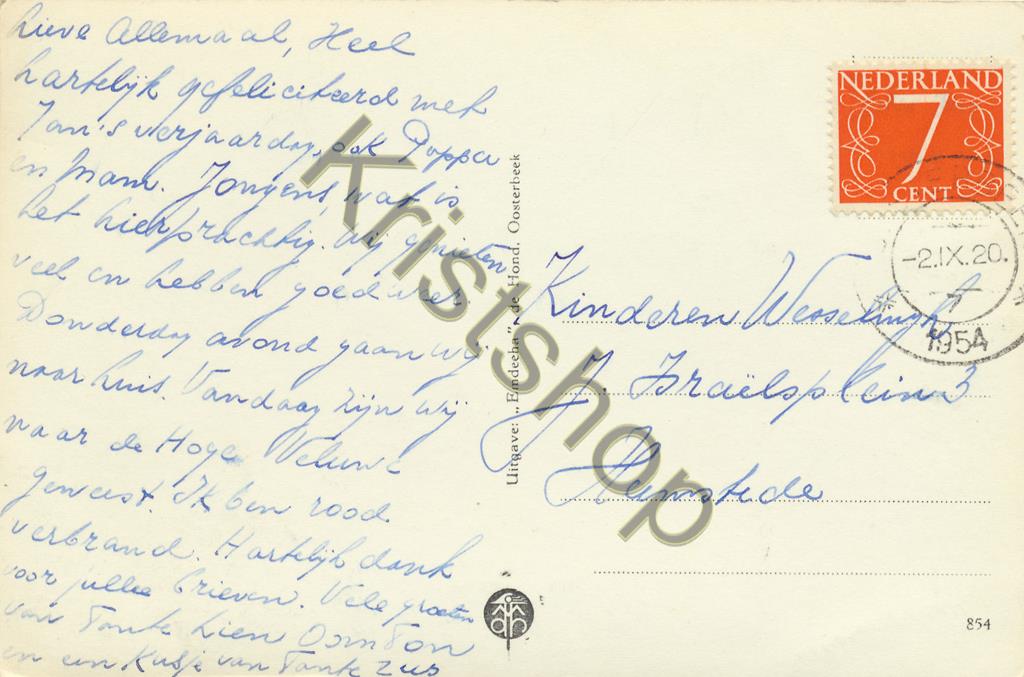 Lieve Allemaal, Heel
hartelijk gefeliciteerd met
Jan's verjaardag, ook Pappa
en Mam. Jongens, wat is
het hier prachtig. Wij genieten
veel en hebben goed weer.
Donderdag avond gaan wij
naar huis. Vandaag zijn wij
naar de Hoge Veluwe
geweest. Ik ben rood
verbrand. Hartelijk dank
voor jullie brieven. Vele groeten
van Tante Lien Oom Ton
en een kusje van Tante Zus
Uitgave: „Emdeeha" de Hond, Oosterbeek
NEDERLAND
7
CENT
-2.IX.20.
7
1954
Kinderen Wesselingh
J. Israëlsplein 3
Heemstede
854
Kristshop